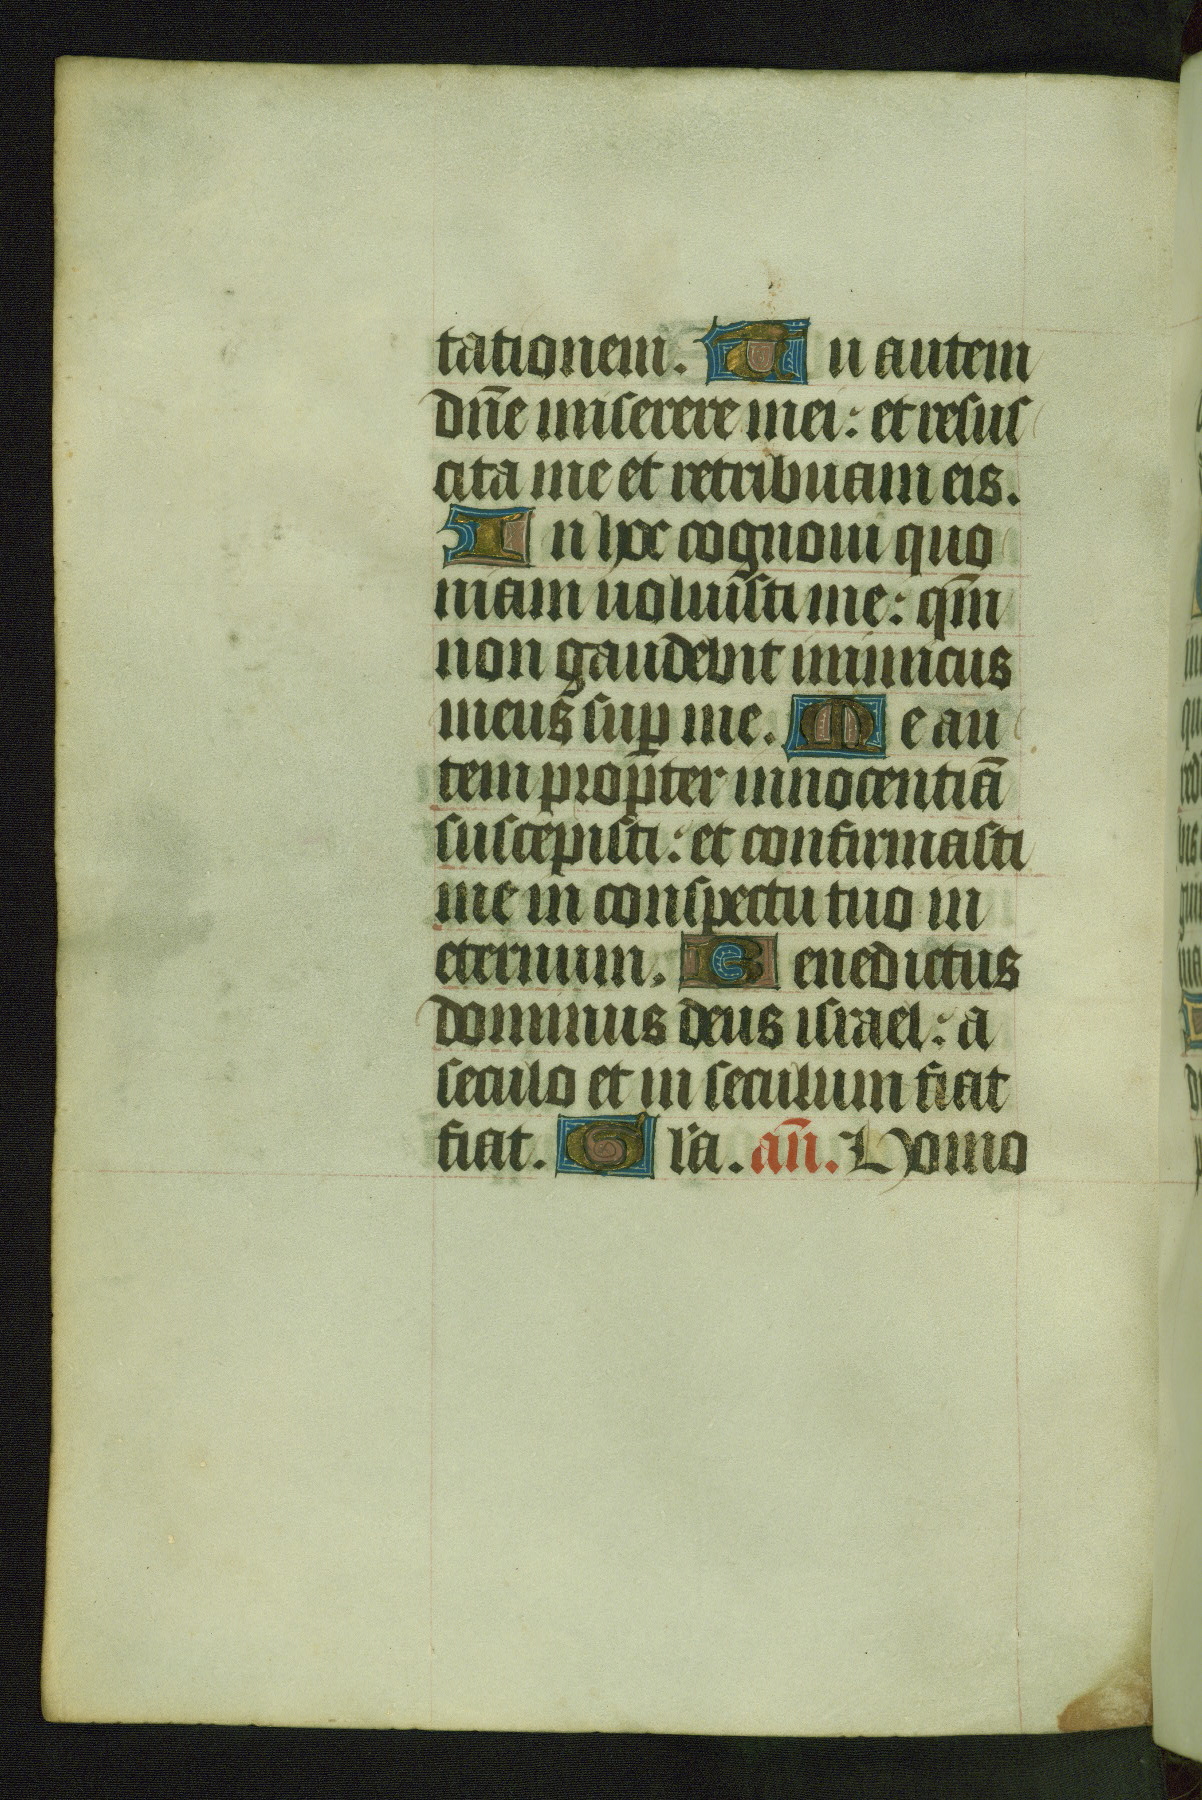 tationem. Tu autem
dn̄e miserere mei: et resus
cita me et retribuam eis.
In hoc cognoui quo
niam uoluisti me: qm̄
non gaudebit inimicus
meus sup̱ me. Me au
tem propter innocentiā
suscepisti: et confirmasti
me in conspectu tuo in
eternum. Benedictus
dominus deus israel: a
seculo et in seculum fiat
fiat. Gl'a. an̄. Homo